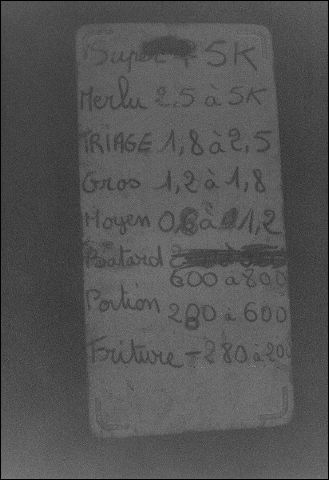 Super + 5K
Merlu 2.5 à 5K
TRIAGE 1,8 à 2,5
Gros 1,2 à 1,8
Moyen 0,8 à 1,2
Batard
600 à 800
Portion 280 à 600
Friture - 280 à 200